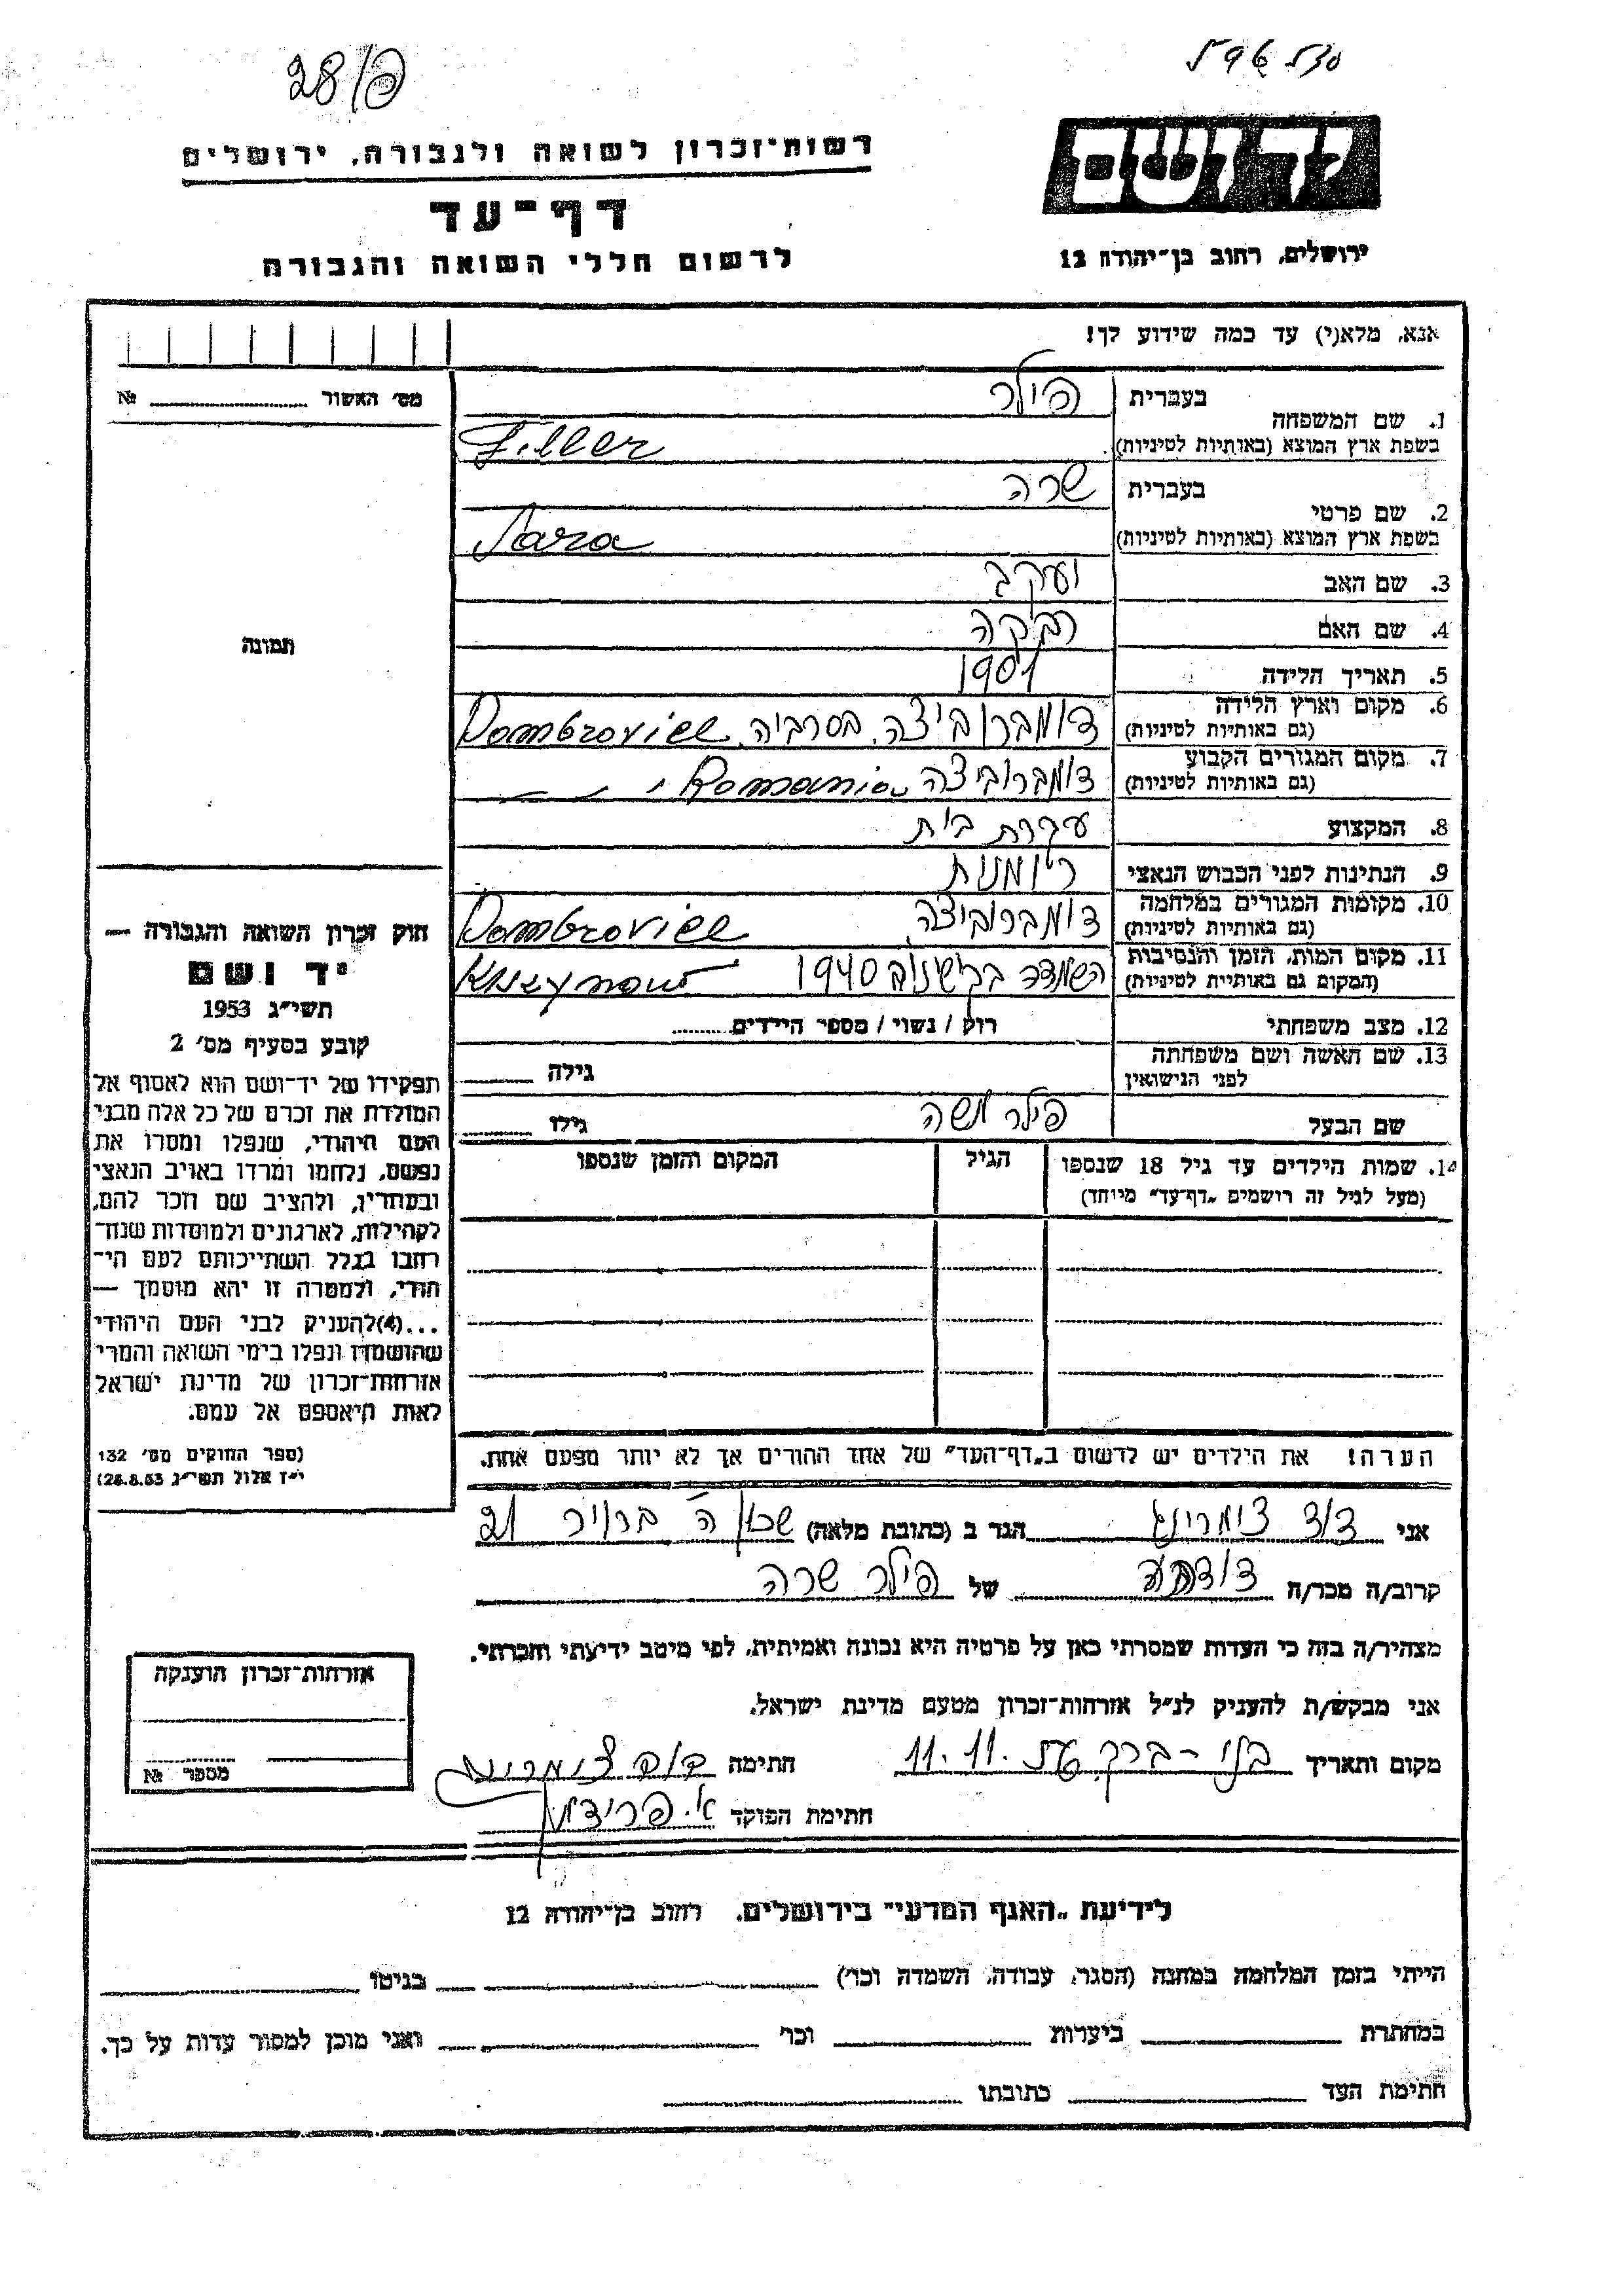 28/פ
יד ושם
רשות־זכרון לשואה ולגבורה, ירושלים
דף־עד
לרשום חללי השואה והגבורה
ירושלים, רחוב בן־יהודה 12
אנא, מלא(י) עד כמה שידוע לך!
מס׳ האשור № 
1. שם המשפחה
בעברית פילר
בשפת ארץ המוצא (באותיות לטיניות) Filler
2. שם פרטי
בעברית שרה
בשפת ארץ המוצא (באותיות לטיניות) Sara
3. שם האב יעקב
4. שם האם רבקה
5. תאריך הלידה 1901
6. מקום וארץ הלידה (גם באותיות לטיניות) דומברוביצה, בסרביה, Dombroviee
7. מקום המגורים הקבוע (גם באותיות לטיניות) דומברוביצה Romania
8. המקצוע עקרת בית
9. הנתינות לפני הכבוש הנאצי רומנית
10. מקומות המגורים במלחמה (גם באותיות לטיניות) דומברוביצה, Dombroviee
11. מקום המות, הזמן והנסיבות (המקום גם באותיות לטיניות) הושמדה בקישינוב 1940
12. מצב משפחתי רוק / נשוי / מספר הילדים
13. שם האשה ושם משפחתה לפני הנישואין גילה
שם הבעל פילר משה גילו
14. שמות הילדים עד גיל 18 שנספו הגיל המקום והזמן שנספו
(מעל לגיל זה רושמים „דף־עד״ מיוחד)
הערה! את הילדים יש לרשום ב„דף־העד״ של אחד ההורים אך לא יותר מפעם אחת.
תמונה
חוק זכרון השואה והגבורה —
יד ושם
תשי״ג 1953
קובע בסעיף מס׳ 2
תפקידו של יד־ושם הוא לאסוף אל
המולדת את זכרם של כל אלה מבני
העם היהודי, שנפלו ומסרו את
נפשם, נלחמו ומרדו באויב הנאצי
ובעוזריו, ולהציב שם וזכר להם,
לקהילות, לארגונים ולמוסדות שנח־
רבו בגלל השתייכותם לעם הי־
הודי, ולמטרה זו יהא מוסמך —
...(4)להעניק לבני העם היהודי
שהושמדו ונפלו בימי השואה והמרי
אזרחות־זכרון של מדינת ישראל
לאות היאספם אל עמם.
(ספר החוקים מס׳ 132
י״ז אלול תשי״ג 28.8.53)
אני דוד צימרינג הגר ב (כתובת מלאה) שכון ה׳ 21
קרוב/ה מכר/ה של פילר שרה
מצהיר/ה בזה כי העדות שמסרתי כאן על פרטיה היא נכונה ואמיתית, לפי מיטב ידיעתי והכרתי.
אני מבקש/ת להעניק לנ״ל אזרחות־זכרון מטעם מדינת ישראל.
מקום ותאריך בני-ברק 11.11. חתימה דוד צימרינג
חתימת הפוקד
אזרחות־זכרון הוענקה
מספר №
לידיעת „האגף המדעי״ בירושלים, רחוב בן־יהודה 12
הייתי בזמן המלחמה במחנה (הסגר, עבודה, השמדה וכו׳) בגיטו
במחתרת ביערות וכו׳ ואני מוכן למסור עדות על כך.
חתימת העד כתובתו